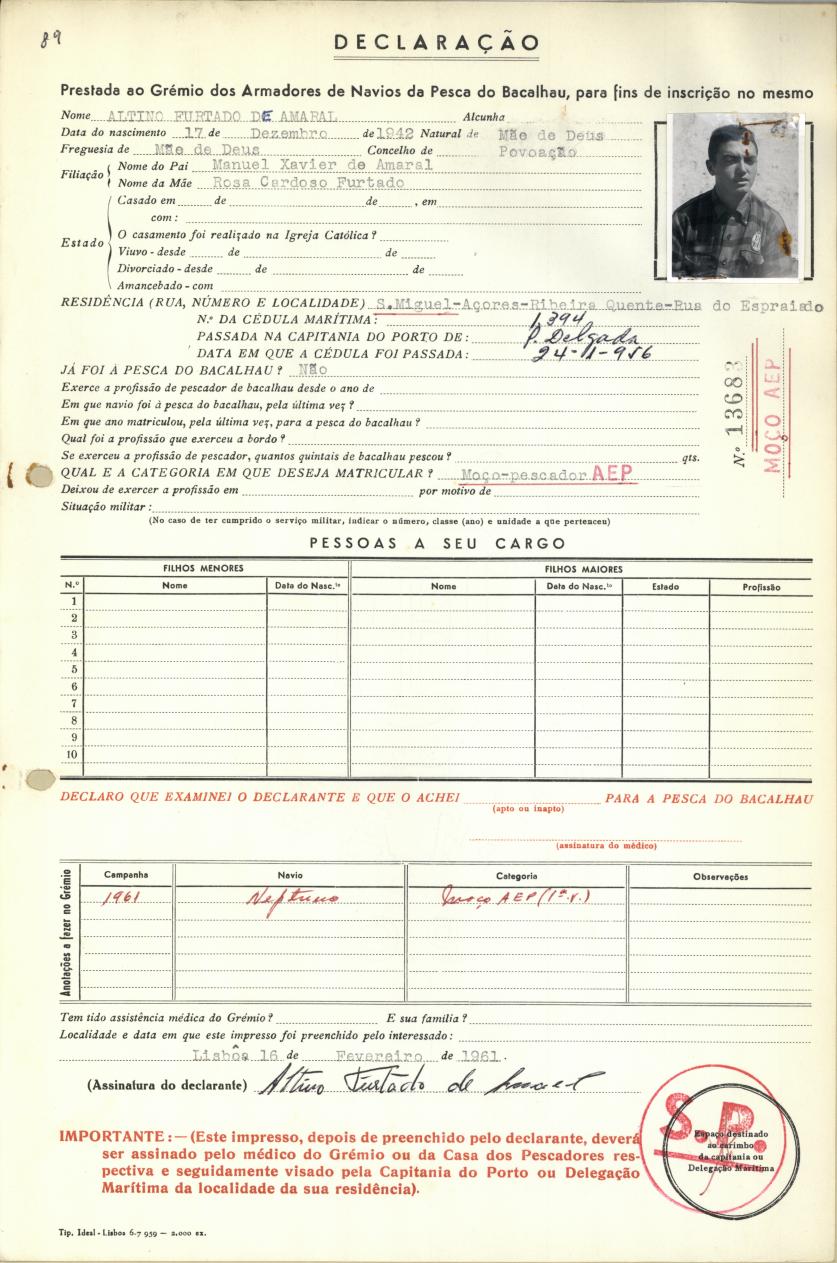 89
DECLARAÇÃO
Prestada ao Grémio dos Armadores de Navios da Pesca do Bacalhau, para fins de inscrição no mesmo
Nome ALTINO FURTADO DE AMARAL Alcunha
Data do nascimento 17 de Dezembro de 1942 Natural de Mãe de Deus
Freguesia de Mãe de Deus Concelho de Povoação
Filiação
Nome do Pai Manuel Xavier de Amaral
Nome da Mãe Rosa Cardoso Furtado
Estado
Casado em de de , em
com:
O casamento foi realizado na Igreja Católica?
Viuvo - desde de de
Divorciado - desde de de
Amancebado - com
RESIDÊNCIA (RUA, NÚMERO E LOCALIDADE) S.Miguel-Açores-Ribeira Quente-Rua do Espraiado
N.º DA CÉDULA MARÍTIMA: 1,394
PASSADA NA CAPITANIA DO PORTO DE: P. Delgada
DATA EM QUE A CÉDULA FOI PASSADA: 24-11-956
JÁ FOI À PESCA DO BACALHAU? Não
Exerce a profissão de pescador de bacalhau desde o ano de
Em que navio foi à pesca do bacalhau, pela última vez?
Em que ano matriculou, pela última vez, para a pesca do bacalhau?
Qual foi a profissão que exerceu a bordo?
Se exerceu a profissão de pescador, quantos quintais de bacalhau pescou? qts.
QUAL E A CATEGORIA EM QUE DESEJA MATRICULAR? Moço-pescador AEP
Deixou de exercer a profissão em por motivo de
Situação militar:
(No caso de ter cumprido o serviço militar, indicar o número, classe (ano) e unidade a que pertenceu)
N.º 13683
MOÇO AEP
PESSOAS A SEU CARGO
FILHOS MENORES FILHOS MAIORES
N.º Nome Data do Nasc.to Nome Data do Nasc.to Estado Profissão
1
2
3
4
5
6
7
8
9
10
DECLARO QUE EXAMINEI O DECLARANTE E QUE O ACHEI PARA A PESCA DO BACALHAU
(apto ou inapto)
(assinatura do médico)
Anotações a fazer no Grémio
Campanha Navio Categoria Observações
1961 Neptuno Moço AEP (1ª.v.)
Tem tido assistência médica do Grémio? E sua família?
Localidade e data em que este impresso foi preenchido pelo interessado:
Lisbôa 16 de Fevereiro de 1961.
(Assinatura do declarante) Altino Furtado de Amaral
IMPORTANTE: — (Este impresso, depois de preenchido pelo declarante, deverá
ser assinado pelo médico do Grémio ou da Casa dos Pescadores res-
pectiva e seguidamente visado pela Capitania do Porto ou Delegação
Marítima da localidade da sua residência).
S.P.
Espaço destinado
ao carimbo
da capitania ou
Delegação Marítima
Tip. Ideal - Lisboa 6-7 959 — 2.000 ex.